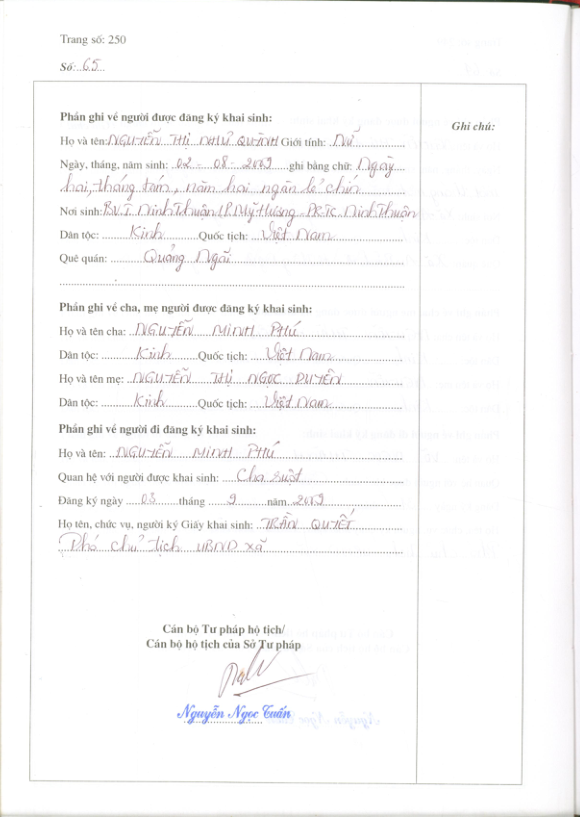 Trang số: 250
Số: 65
Phần ghi về người được đăng ký khai sinh:
Ghi chú:
Họ và tên: NGUYỄN THỊ NHƯ QUỲNH Giới tính: Nữ
Ngày, tháng, năm sinh: 02 - 08 - 2009 ghi bằng chữ: Ngày
hai, tháng tám, năm hai ngàn lẻ chín
Nơi sinh: B.V.T. Ninh Thuận, P. Mỹ Hương - PR.TC Ninh Thuận
Dân tộc: Kinh Quốc tịch: Việt Nam
Quê quán: Quảng Ngãi
Phần ghi về cha, mẹ người được đăng ký khai sinh:
Họ và tên cha: NGUYỄN MINH PHÚ
Dân tộc: Kinh Quốc tịch: Việt Nam
Họ và tên mẹ: NGUYỄN THỊ NGỌC DUYÊN
Dân tộc: Kinh Quốc tịch: Việt Nam
Phần ghi về người đi đăng ký khai sinh:
Họ và tên: NGUYỄN MINH PHÚ
Quan hệ với người được khai sinh: Cha ruột
Đăng ký ngày 03 tháng 9 năm 2009
Họ tên, chức vụ, người ký Giấy khai sinh: TRẦN QUYẾT
Phó chủ tịch UBND xã
Cán bộ Tư pháp hộ tịch/
Cán bộ hộ tịch của Sở Tư pháp
Nguyễn Ngọc Tuấn